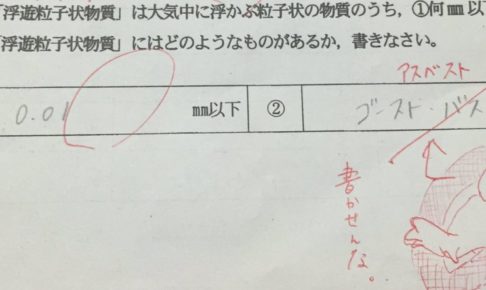 「浮遊粒子状物質」は大気中に浮かぶ粒子状の物質のうち，①何㎜以
「浮遊粒子状物質」にはどのようなものがあるか，書きなさい。
アスベスト
0.01 ㎜以下 ② ゴースト・バス
書かせんな。